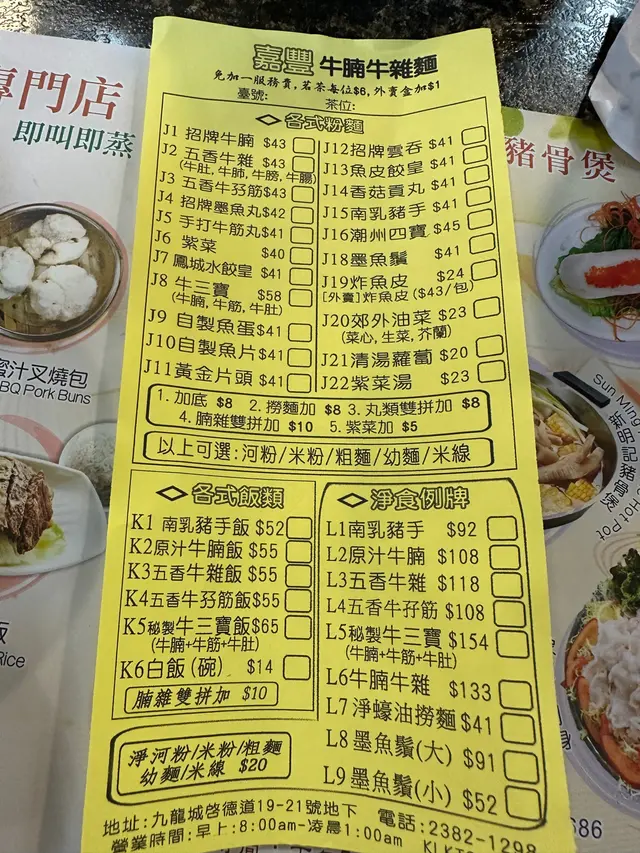 嘉豐 牛腩牛雜麵
免加一服務費,茗茶每位$6,外賣盒加$1
臺號: 茶位:
各式粉麵
J1 招牌牛腩 $43
J2 五香牛雜 $43
(牛肚, 牛肺, 牛膀, 牛腸)
J3 五香牛孖筋$43
J4 招牌墨魚丸$42
J5 手打牛筋丸$41
J6 紫菜 $40
J7 鳳城水餃皇 $41
J8 牛三寶 $58
(牛腩, 牛筋, 牛肚)
J9 自製魚蛋$41
J10自製魚片$41
J11黃金片頭 $41
J12招牌雲吞 $41
J13魚皮餃皇 $41
J14香菇貢丸 $41
J15南乳豬手 $41
J16潮州四寶 $45
J18墨魚鬚 $41
J19炸魚皮 $24
[外賣]炸魚皮 ($43/包)
J20郊外油菜 $23
(菜心, 生菜, 芥蘭)
J21清湯蘿蔔 $20
J22紫菜湯 $23
1. 加底 $8 2. 撈麵加 $8 3. 丸類雙拼加 $8
4. 腩雜雙拼加 $10 5. 紫菜加 $5
以上可選:河粉/米粉/粗麵/幼麵/米線
各式飯類
K1 南乳豬手飯 $52
K2原汁牛腩飯 $55
K3五香牛雜飯 $55
K4五香牛孖筋飯$55
K5秘製牛三寶飯$65
(牛腩+牛筋+牛肚)
K6白飯(碗) $14
腩雜雙拼加 $10
淨河粉/米粉/粗麵
幼麵/米線 $20
淨食例牌
L1南乳豬手 $92
L2原汁牛腩 $108
L3五香牛雜 $118
L4五香牛孖筋 $108
L5秘製牛三寶 $154
(牛腩+牛筋+牛肚)
L6牛腩牛雜 $133
L7淨蠔油撈麵$41
L8墨魚鬚(大) $91
L9墨魚鬚(小) $52
地址:九龍城啓德道19-21號地下 電話:2382-1298
營業時間:早上:8:00am-凌晨1:00am
專門店
即叫即蒸
蜜汁叉燒包
BBQ Pork Buns
飯
Rice
豬骨煲
Sun Ming
新明記豬骨煲
Hot Pot
686